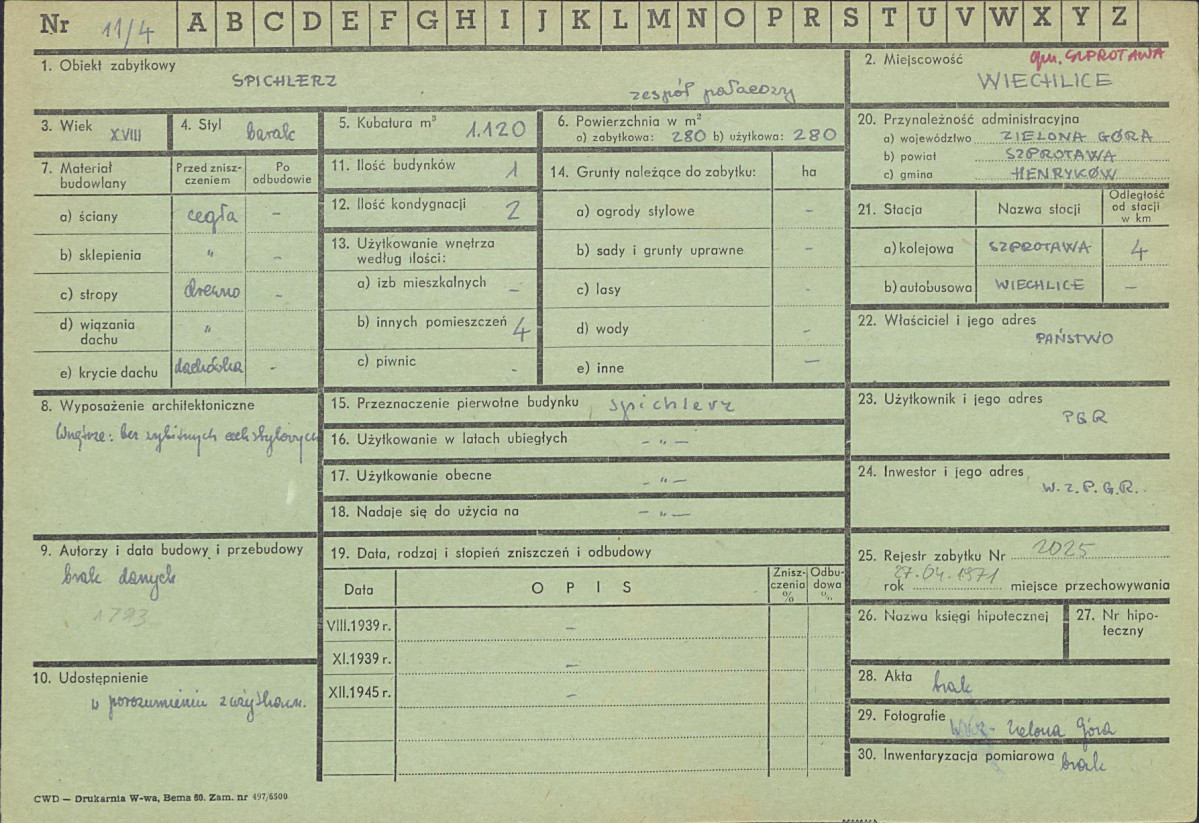 Nr 11/4 A B C D E F G H I J K L M N O P R S T U V W X Y Z
1. Obiekt zabytkowy
SPICHLERZ
zespół pałacowy
2. Miejscowość
gm. SZPROTAWA
WIECHLICE
3. Wiek XVIII
4. Styl barok
5. Kubatura m³ 1.120
6. Powierzchnia w m²
a) zabytkowa: 280 b) użytkowa: 280
20. Przynależność administracyjna
a) województwo ZIELONA GÓRA
b) powiat SZPROTAWA
c) gmina HENRYKÓW
7. Materiał budowlany
Przed znisz-
czeniem
Po
odbudowie
a) ściany cegła –
b) sklepienia " –
c) stropy drewno –
d) wiązania
dachu "
e) krycie dachu dachówka –
11. Ilość budynków 1
12. Ilość kondygnacji 2
13. Użytkowanie wnętrza
według ilości:
a) izb mieszkalnych –
b) innych pomieszczeń 4
c) piwnic -
14. Grunty należące do zabytku: ha
a) ogrody stylowe –
b) sady i grunty uprawne –
c) lasy -
d) wody -
e) inne –
21. Stacja Nazwa stacji
Odległość
od stacji
w km
a) kolejowa SZPROTAWA 4
b) autobusowa WIECHLICE –
22. Właściciel i jego adres
PAŃSTWO
8. Wyposażenie architektoniczne
Wnętrze: bez wybitnych cech stylowych
15. Przeznaczenie pierwotne budynku spichlerz
16. Użytkowanie w latach ubiegłych – " –
17. Użytkowanie obecne – " –
18. Nadaje się do użycia na – " –
23. Użytkownik i jego adres
PGR
24. Inwestor i jego adres
W.Z.P.G.R.
9. Autorzy i data budowy i przebudowy
brak danych
1793
19. Data, rodzaj i stopień zniszczeń i odbudowy
Data O P I S
Znisz-
czenia
%
Odbu-
dowa
%
VIII.1939 r. –
XI.1939 r. –
XII.1945 r. –
25. Rejestr zabytku Nr 2025
rok 27.04.1971 miejsce przechowywania
26. Nazwa księgi hipotecznej
27. Nr hipo-
teczny
10. Udostępnienie
w porozumieniu z użytkown.
28. Akta brak
29. Fotografie WKZ - Zielona Góra
30. Inwentaryzacja pomiarowa brak
CWD — Drukarnia W-wa, Bema 60. Zam. nr 497/6500